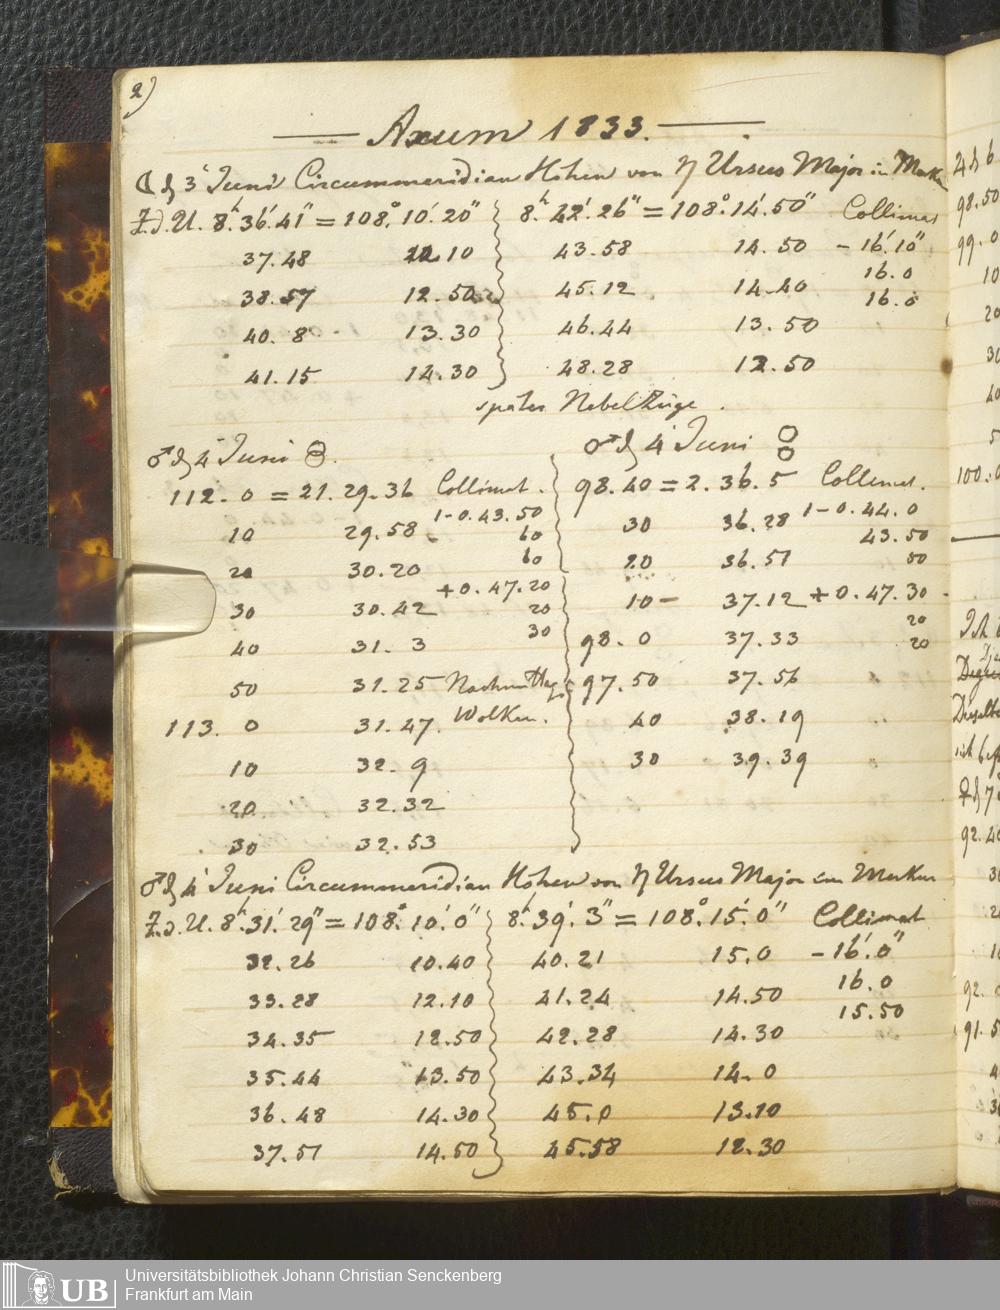 2)
Axum 1833.
☾ d 3' Juni Circummeridian Höhen von η Ursus Major in Merkur
Z.d.U. 8.h 36.' 41" = 108.° 10.' 20" 8.h 42.' 26" = 108.° 14.' 50" Collimat
37.48 12.10 43.58 14.50 - 16.' 10"
38.57 12.50 45.12 14.40 16.0
40.8 13.30 46.44 13.50 16.0
41.15 14.30 48.28 12.50
später Nebelzüge.
♂ d 4' Juni
112.0 = 21.29.36 Collimat.
10 29.58 1-0.43.50
60
20 30.20 60
30 30.42 +0.47.20
20
40 31.3 30
50 31.25 Nachmittags
113.0 31.47. Wolken.
10 32.9
20 32.32
30 32.53
♂ d 4' Juni
98.40 = 2.36.5 Collimat.
30 36.28 1-0.44.0
43.50
20 36.51 50
10 - 37.12 +0.47.30
20
98.0 37.33 20
97.50 37.56
40 38.19
30 39.39
♂ d 4' Juni Circummeridian Höhen von η Ursus Major im Merkur
Z.d.U. 8.h 31.' 29" = 108.° 10.' 0" 8.h 39.' 3" = 108.° 15.' 0" Collimat
32.26 10.40 40.21 15.0 - 16.' 0"
33.28 12.10 41.24 14.50 16.0
34.35 12.50 42.28 14.30 15.50
35.44 13.50 43.34 14.0
36.48 14.30 45.0 13.10
37.51 14.50 45.58 12.30
98.50
99.0
10
20
30
40
100.0
92.40
92.0
UB Universitätsbibliothek Johann Christian Senckenberg
Frankfurt am Main